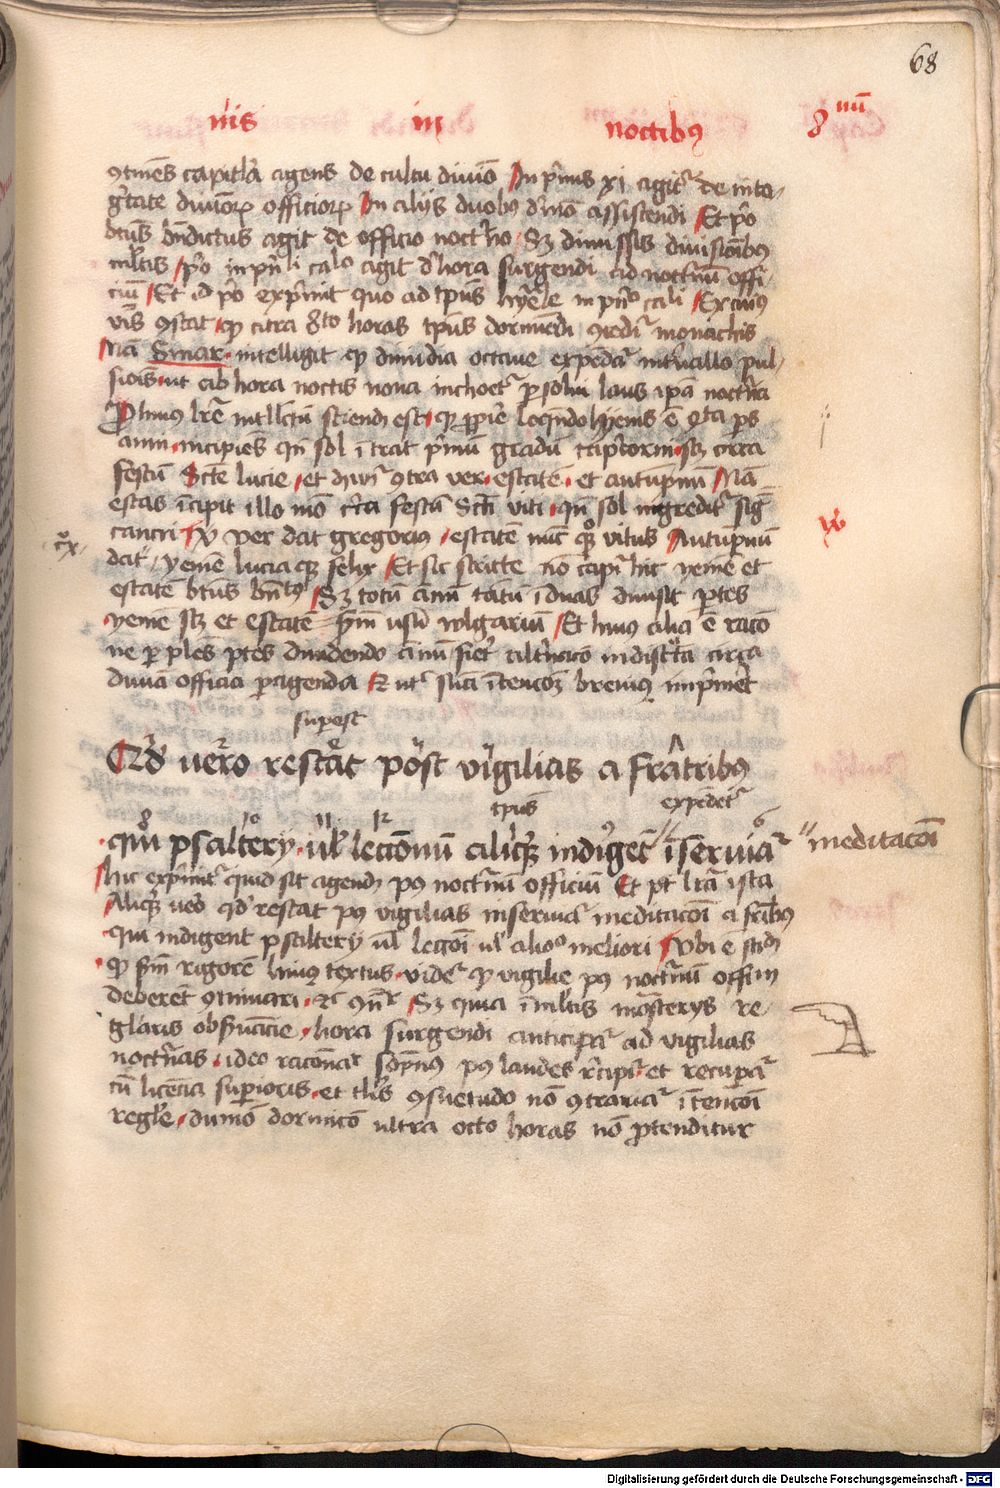 68
nis in noctibus 8 uu
ꝯtinēs capitl'a agens de cultu diuīo In p'mis xi agit' de inte
g'tate diuīoꝝ officioꝝ In alijs duobus de mō assistendi Et p'o
btūs bn̄dictus agit de officio noct'no Sꝫ dimissis diuisiōibus
ml'tis p'o in pn'ti cal'o agit d' hora surgendi ad noct'nū offi
ciū Et id p'o exp'mit quo ad tp̄us hye'le in pn'ti cali Ex cuius
ꝯstat ꝙ citra 8to horas tp̄us dormiēdi ꝯcedit' monachis
Nā Smar. intelligit ꝙ dimidia octaue expēdat' int'uallo pul
sicōis ut ab hora noctis nona inchoet' p'solui laus ip̄a noct'na
P huius lr̄e intll'ctū sciend' est ꝙ ꝓprie loq̄ndo hyems ē q'ta ps
anni incipiēs qn̄ sol ītrat p'mū gradū cap'corni sꝫ circa
festū Scte lucie et diuidit' ꝯtra ver estatē et autūpnū Nā
estas īcipit illo mō c'ca festū Scti viti qn̄ sol ingredit' sig
cancri v' ver dat gregorius estatē nūc quoꝫ vitus Autūpnū
dat yemē lucia qꝫ felix Et sic stricte nō capit' hic yemē et
estatē btūs bn̄ctus Sꝫ totū annū tātū ī duas diuisit p'tes
yemē sꝫ et estatē scdm usū wlgariū Et huius alia ē racō
ne p' pl'es p'tes diuidendo annū fiet alt'nacō indisc'ta circa
diuina officia p'agenda Et ut' suā ītencōꝫ breuius imp'meret
superest
Qd' uero restat post uigilias a fratribus
tp̄us expēdet'
qui psaltery ul' leccōnū aliꝗꝫ indiget īseruiat' meditacōi
Hic exp'mit' quid sit agend' pꝰ noct'nū officiū Et pt lr̄a ista
Aliꝗꝫ ueō qd' restat pꝰ vigilias inseruiat' meditacōi a fr'ibus
qui indigent psaltery ul' leccōi ul' alioꝰ meliori Vbi ē sciēd'
ꝙ scdm rigorē huius textus videt' ꝙ vigilie pꝰ noct'nū offm
deberēt ꝯtinuari Sꝫ quia ī ml'tis monasterys re
gl'aris obs'uācie hora surgendi anticipat' ad vigilias
noct'nas ideo racōnat' sōpnus pꝰ laudes r'cipit' et recup'at'
cū licēcia sup'ioris et tl'is ꝯsuetudo nō ꝯtrariat' ītencōi
regl'e dūmō dormicō ultra octo horas nō p'tenditur
Digitalisierung gefördert durch die Deutsche Forschungsgemeinschaft - DFG